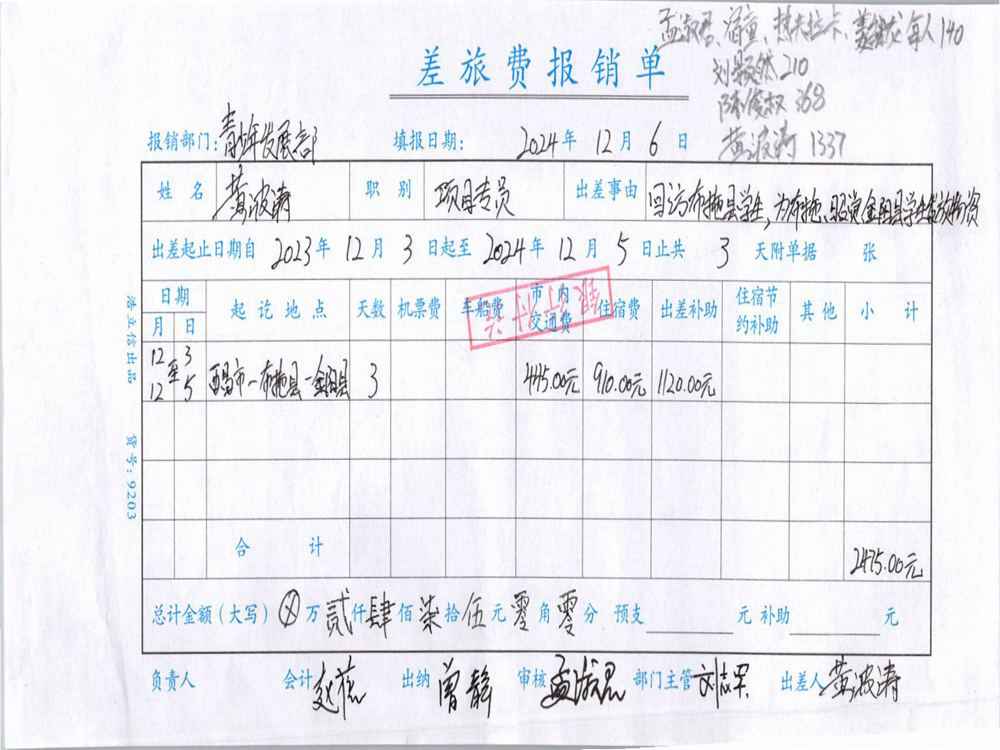 孟淑君、
每人140
210
陈俊权 368
黄波涛 1337
差旅费报销单
报销部门：青少年发展部 填报日期： 2024年 12月 6日
姓名 黄波涛 职别 项目专员 出差事由 回访布拖县学生，为布拖、金阳县学生发放物资
出差起止日期自 2023年 12月 3日起至 2024年 12月 5日止共 3 天附单据 张
日期 起讫地点 天数 机票费 车船费 市内交通费 住宿费 出差补助 住宿节约补助 其他 小计
月 日
12 3 至 12 5 西昌市—布拖县—金阳县 3 445.00元 910.00元 1120.00元
合计 2475.00元
总计金额（大写） ⊗万贰仟肆佰柒拾伍元零角零分 预支 元 补助 元
负责人 会计 出纳 曾静 审核 孟淑君 部门主管 刘志军 出差人 黄波涛
货号：9203